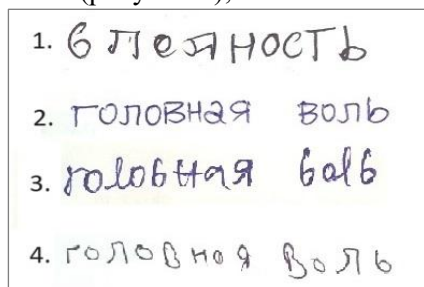 1. б леяность
2. головная воль
3. головная боль
4. головная Воль